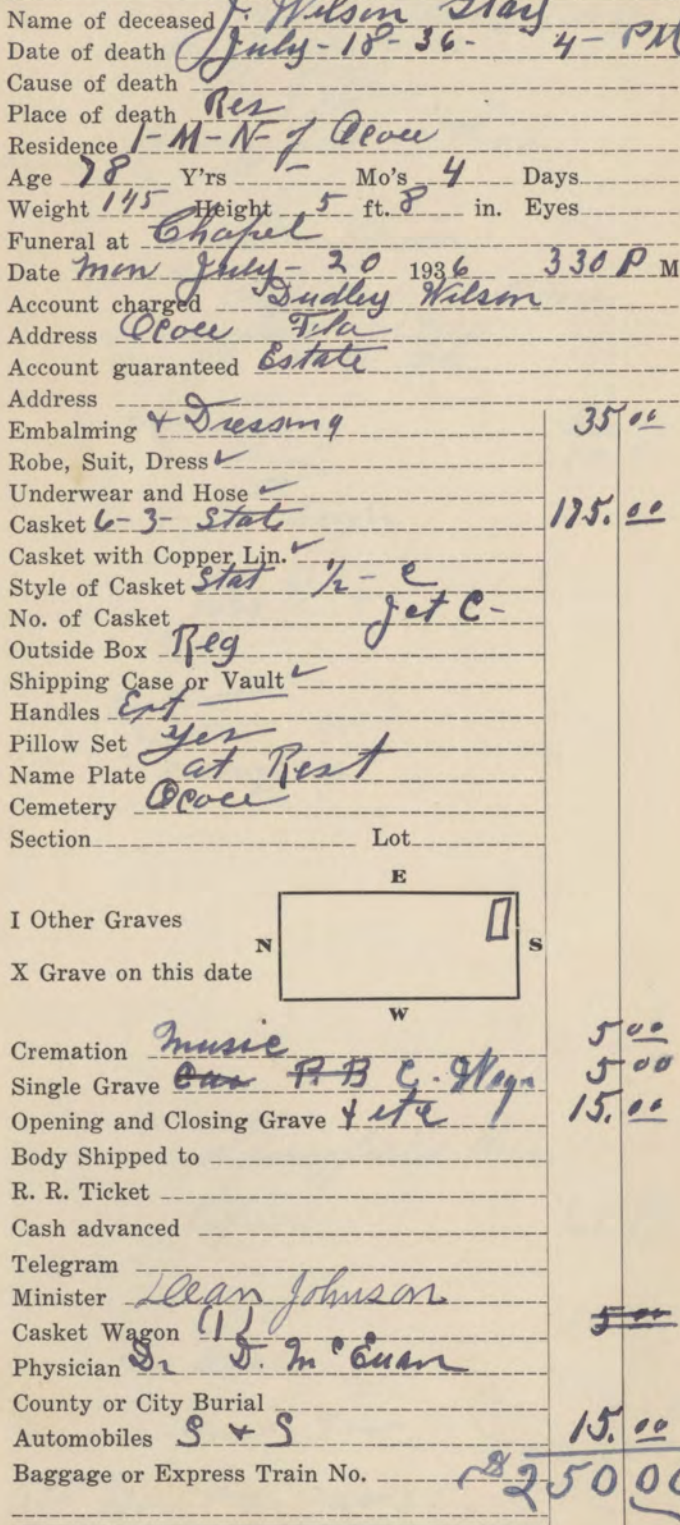 Name of deceased J. Wilson Story
Date of death July-18-36- 4-PM
Cause of death
Place of death Res
Residence 1-M-N- of Ocoee
Age 78 Y'rs - Mo's 4 Days
Weight 145 Height 5 ft. 8 in. Eyes
Funeral at Chapel
Date Mon July-20 1936 330 P M
Account charged Dudley Wilson
Address Ocoee Fla
Account guaranteed Estate
Address
Embalming + Dressing 35 00
Robe, Suit, Dress ✓
Underwear and Hose ✓
Casket 6-3- State 175. 00
Casket with Copper Lin. ✓
Style of Casket Stat 1/2 - C
No. of Casket Jet C-
Outside Box Reg
Shipping Case or Vault ✓
Handles Ext
Pillow Set Yes
Name Plate at Rest
Cemetery Ocoee
Section Lot
E
I Other Graves
N S
X Grave on this date
W
Cremation Music 5 00
Single Grave P.B C. Wagn 5 00
Opening and Closing Grave + etc 15. 00
Body Shipped to
R. R. Ticket
Cash advanced
Telegram
Minister Dean Johnson
Casket Wagon (1) 5 00
Physician Dr D. McEuan
County or City Burial
Automobiles S + S 15. 00
Baggage or Express Train No. $250 00